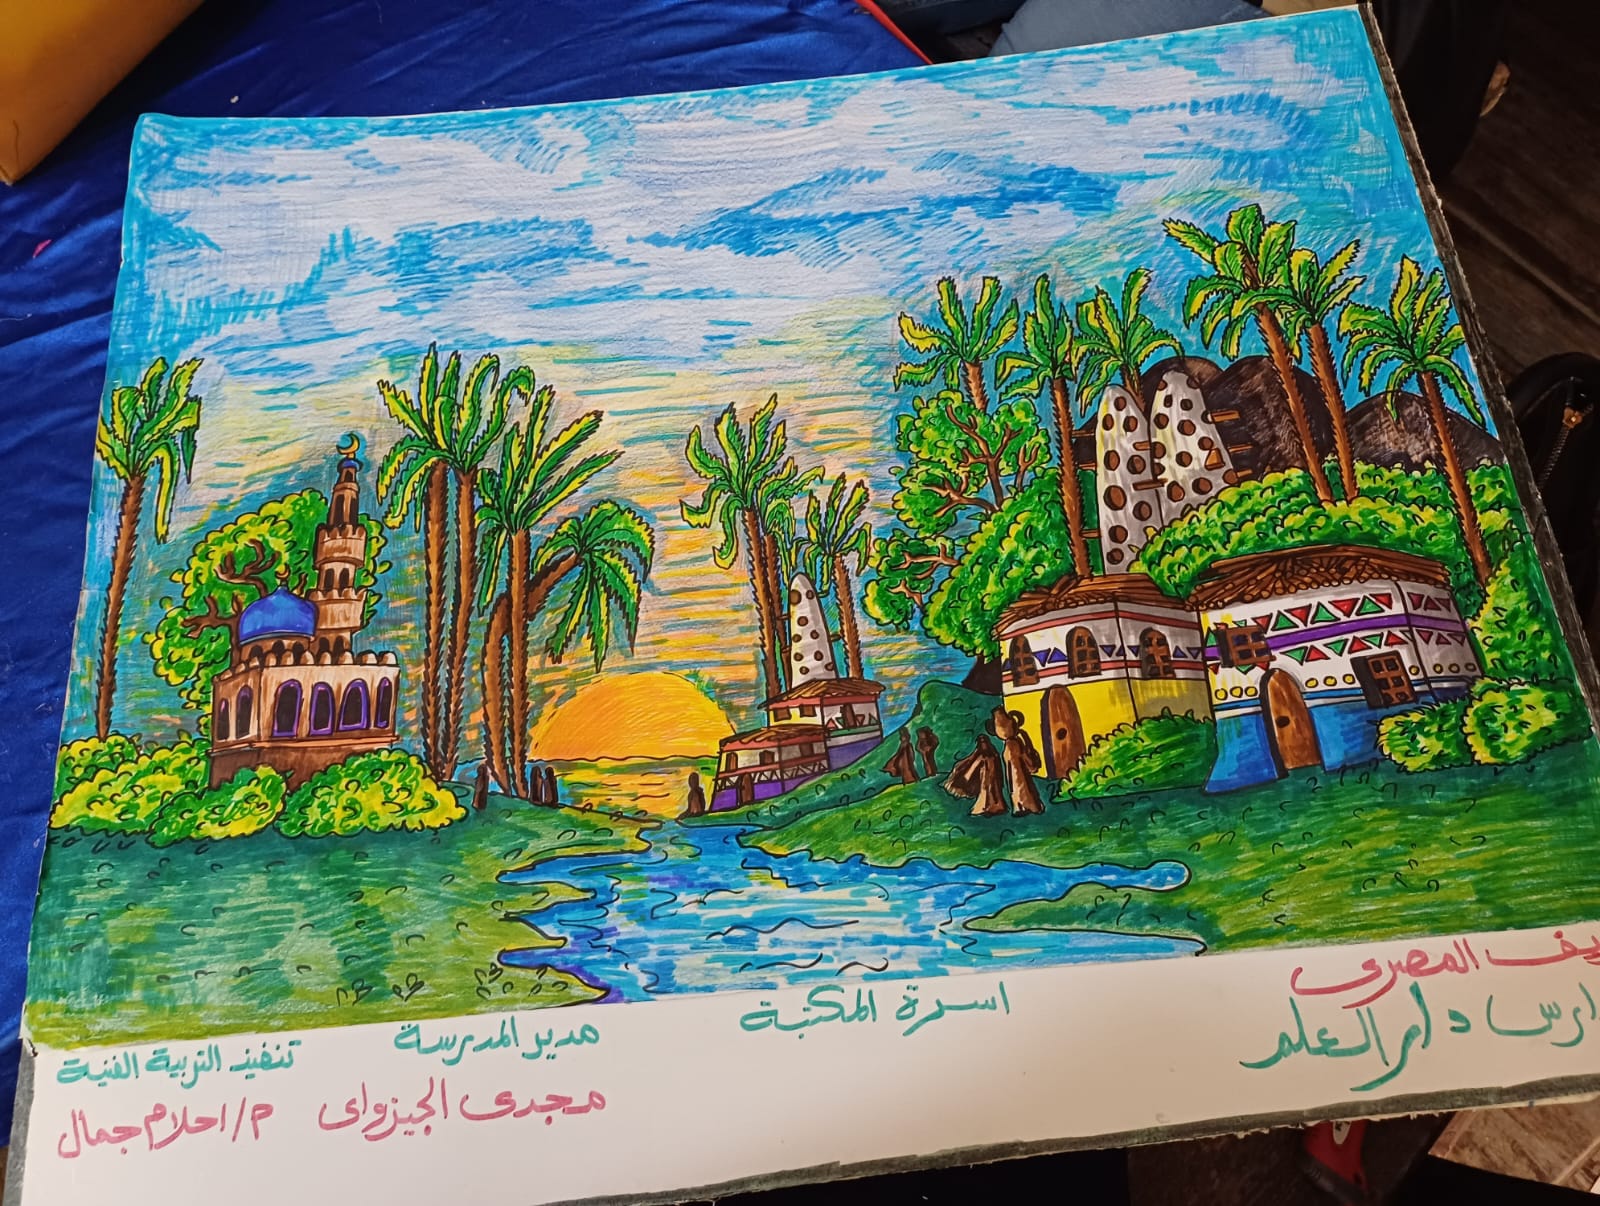 المصرى
دار العلم
اسرة المكتبة
مدير المدرسة
مجدى الجيزواى
تنفيذ التربية الفنية
م/احلام جمال